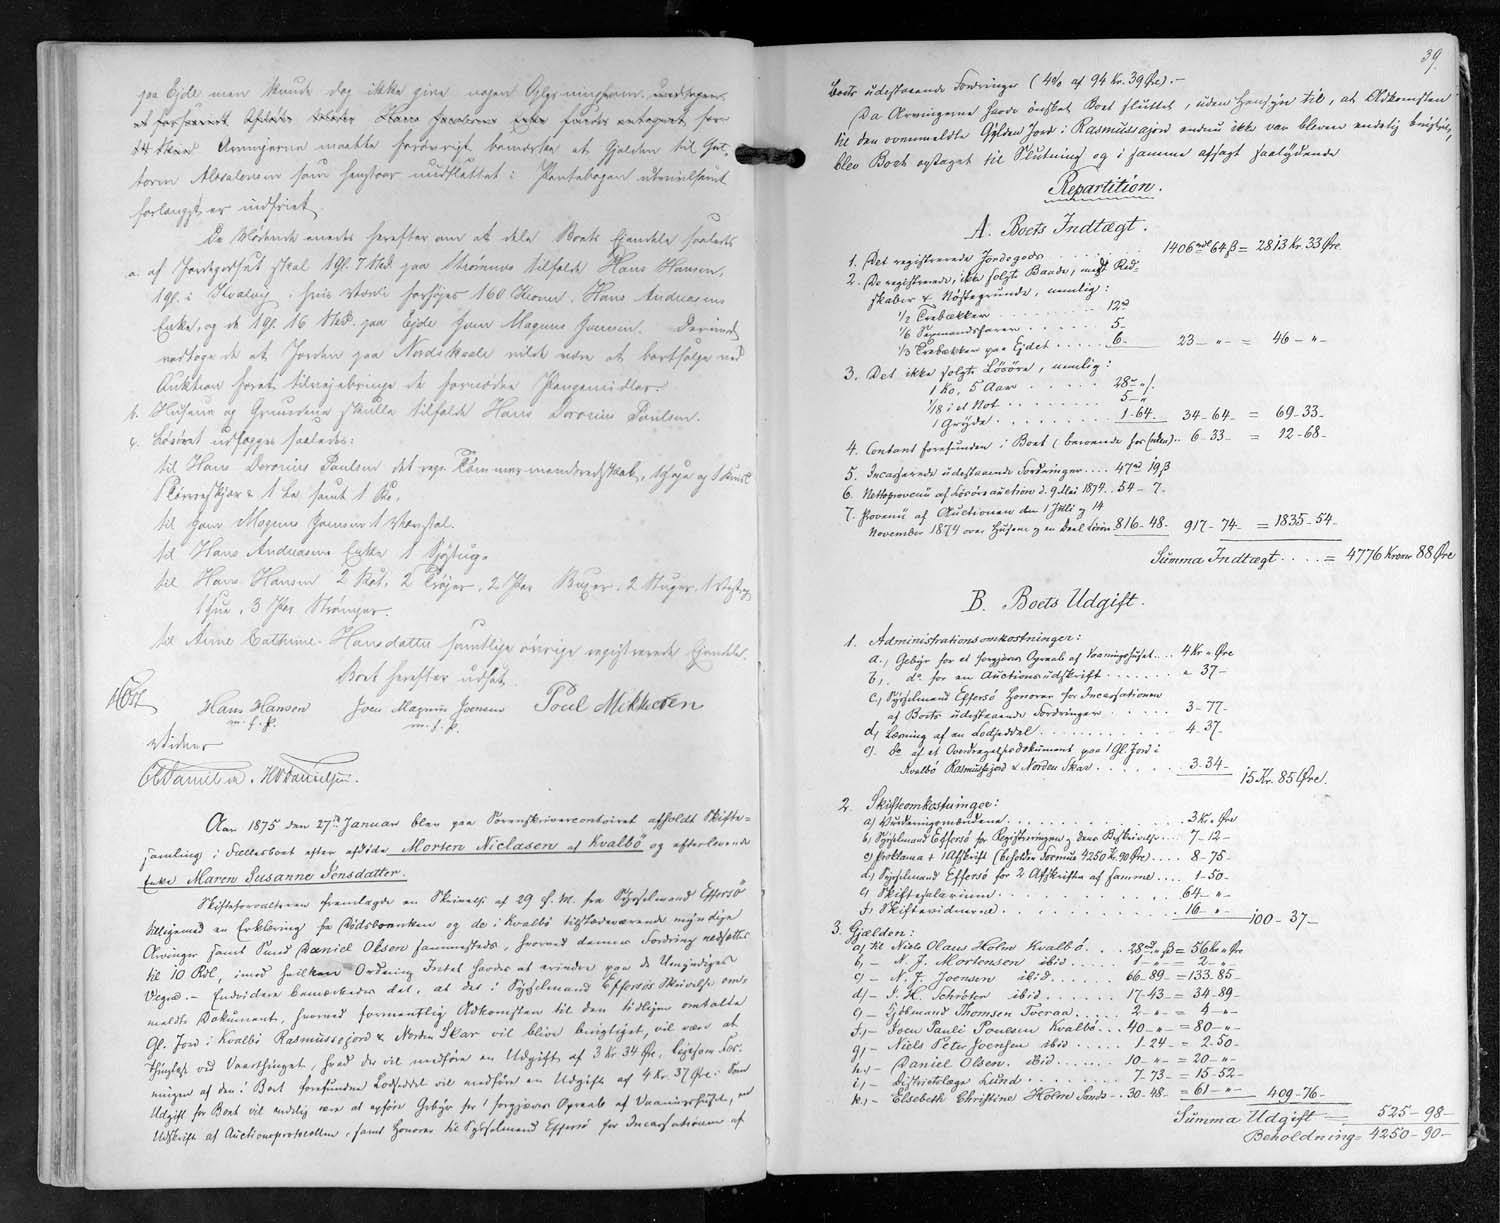 paa Ejde men kunde dog ikke give nogen Oplysning om.
Arvingerne maatte forøvrigt bemærke at Gjælden til Gut-
torm Absalonsen som henstaar uudslettet i Pantebogen ubetvivlsomt
forlængst er indfriet.
De Mødende enedes herefter om at dele Boets Ejendele saaledes
a. af Jordegodset skal 1 Gl. 7 Skd. paa Strømnæs tilfalde Hans Hansen,
1 Gl. i Kvalvig, hvis Værdi forhøjes 160 Kroner, Hans Andreasens
Enke, og de 1 Gl. 16 Skd. paa Ejde Joen Magnus Joensen. Derimod
vedtoges det at Jorden paa Nordskaale vilde være at bortsælge ved
Auktion foret tilvejebringe de fornødne Pengemidler.
b. Husene og Grundene skulle tilfalde Hans Dorovius Paulsen.
c. Løsøret udlægges saaledes:
til Hans Dorovius Paulsen det regr. Tømmermandsredskab,
1 Le samt 1 Ko.
til Joen Magnus Joensen 1 Væistol.
til Hans Andreasens Enke 1 Sjøtug.
til Hans Hansen 2 Skot. 2 Trøjer, 2 Par Buxer, 2 Stuger, 1 Vest,
1 Hue, 3 Par Strømper.
til Anne Cathrine Hansdatter samtlige øvrige registrerede Ejendele.
Boet herefter udsat.
Høst
Hans Hansen Joen Magnus Joensen Poul Mikkelsen
m. f. P. m. f. P.
Vidner
O Danielsen. H Danielsen.
Aar 1875 den 27de Januar blev paa Sorenskrivercontoiret afholdt Skifte-
samling i Fællesboet efter afdøde Morten Niclasen af Kvalbö og efterlevende
Enke Maren Susanne Jonsdatter.
Skifteforvalteren fremlagde en Skrivelse af 29 f. M. fra Sysselmand Effersö
tilligemed en Erklæring fra Rödsbanken og de i Kvalbö tilstedeværende myndige
Arvinger samt Smed Daniel Olsen sammesteds, hvorved dennes Fordring nedsættes
til 10 Rdl, imod hvilken Ordning Intet havdes at erindre paa de Umyndiges
Vegne. - Endvidere bemærkedes det, at det i Sysselmand Effersös Skrivelse om-
meldte Dokument, hvorved formentlig Adkomsten til den tidligere omtalte
Gl. Jord i Kvalbö Rasmussejord & Norden Skar vil blive berigtiget, vil være at
thinglæse ved Vaarthinget, hvad der vil medføre en Udgift af 3 Kr. 34 Øre, ligesom Læs-
ningen af den i Boet forefundne Lodseddel vil medføre en Udgift af 4 Kr. 37 Øre. Som
Udgift for Boet vil endelig være at opføre Gebyr for 1 forgjæves Opraab af Vaaningshuset, en
Udskrift af Auctionsprotocollen, samt Honorar til Sysselmand Effersö for Incassationen af
39.
Boets udestaaende Fordringer (4% af 94 Kr. 39 Øre). -
Da Arvingerne havde önsket Boet sluttet, uden Hensyn til, at Adkomsten
til den ovenmeldte Gylden Jord i Rasmussajord endnu ikke var bleven endelig berigtiget,
blev Boet optaget til Slutning og i samme afsagt saalydende
Repartition.
A. Boets Indtægt.
1. Det registrerede Jordegods . . . . . . 1406 rdl 64 β = 2813 Kr. 33 Øre.
2. De registrerede, ikke solgte Baade, med Red-
skaber & Nöstegrunde, nemlig:
1/2 Trebækker . . . . . . . . 12 rd
1/6 Sexmandsfaren . . . . . . 5 -
1/3 Trebækker paa Ejdet . . . . . 6 - 23 - " = 46 - "
3. Det ikke solgte Lösöre, nemlig:
1 Ko, 5 Aar . . . . . . 28 - " -
1/18 i et Not . . . . . . . 5 - "
1 Gryde . . . . . . . . . 1 - 64. 34 - 64 - = 69 - 33 -
4. Contant forefunden i Boet (beroende hos Enken) . . 6 - 33 - = 12 - 68 -
5. Incasserede udestaaende Fordringer . . . . 47 rd 19 β
6. Nettoprovenü af Lösöreauction d. 9 Mai 1874. 54 - 7 -
7. Provenü af Auctionen den 1 Juli og 14
November 1874 over Husene og en Deel Lösöre 816 - 48. 917 - 74 - = 1835 - 54 -
Summa Indtægt . . . . = 4776 Kroner 88 Øre
B. Boets Udgift.
1. Administrationsomkostninger:
a., Gebyr for et forgjæves Opraab af Vaaningshuset . . . 4 Kr " Øre
b., do for en Auctionsudskrift . . . . . . " 37 -
c, Sysselmand Effersö Honorar for Incassationen
af Boets udestaaende Fordringer . . . . . . 3 - 77 -
d, Læsning af en Lodseddel . . . . . . . . . 4 37 -
e, do af et Overdragelsesdokument paa 1 Gl. Jord i
Kvalbö Rasmussejord & Norden Skar . . . . . . 3 34 - 15 Kr. 85 Øre.
2. Skifteomkostninger:
a) Vurderingsmændene . . . . . . . . . . . . 3 Kr " Øre
b, Sysselmand Effersö for Registreringen og dens Beskrivelse . . . 7 - 12 -
c) Proklama + 1 Afskrift (beholden Formue 4250 Kr. 90 Øre) . . . . 8 - 75 -
d, Sysselmand Effersö for 2 Afskrifter af samme . . . . 1 - 50 -
e, Skiftesalarium . . . . . . . . . . . 64 - " -
f, Skiftevidnerne . . . . . . . . . . . 16 - " - 100 - 37 -
3. Gjælden:
a) til Niels Olaus Holm Kvalbö . . . 28 rd " β = 56 Kr " Øre
b, - N. J. Mortensen ibid . . . . . 1 - " - = 2 - " -
c) - N. J. Joensen ibid . . . . . . 66 - 89 - = 133. 85 -
d) - J. H. Schröter ibid . . . . . . 17 - 43 - = 34 - 89 -
e) - Sysselmand Thomsen Tveraa . . . . 2 - " - = 4 - " -
f, - Joen Pauli Poulsen Kvalbö . . . 40 - " - = 80 - " -
g, - Niels Peter Joensen ibid . . . . . 1 - 24 - = 2. 50 -
h, - Daniel Olsen ibid . . . . . . . . 10 - " - = 20 - " -
i, - Districtslæge Lund . . . . . . . . 7 - 73 - = 15 - 52 -
k, - Elsebeth Christine Holm Sands . . 30 - 48 - = 61 - " - 409 - 76 -
Summa Udgift = 525 - 98 -
Beholdning = 4250 - 90 -